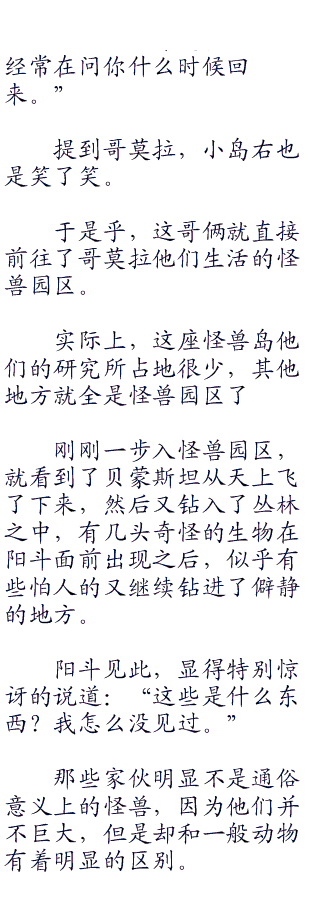 经常在问你什么时候回
来。”
提到哥莫拉，小岛右也
是笑了笑。
于是乎，这哥俩就直接
前往了哥莫拉他们生活的怪
兽园区。
实际上，这座怪兽岛他
们的研究所占地很少，其他
地方就全是怪兽园区了
刚刚一步入怪兽园区，
就看到了贝蒙斯坦从天上飞
了下来，然后又钻入了丛林
之中，有几头奇怪的生物在
阳斗面前出现之后，似乎有
些怕人的又继续钻进了僻静
的地方。
阳斗见此，显得特别惊
讶的说道：“这些是什么东
西？我怎么没见过。”
那些家伙明显不是通俗
意义上的怪兽，因为他们并
不巨大，但是却和一般动物
有着明显的区别。